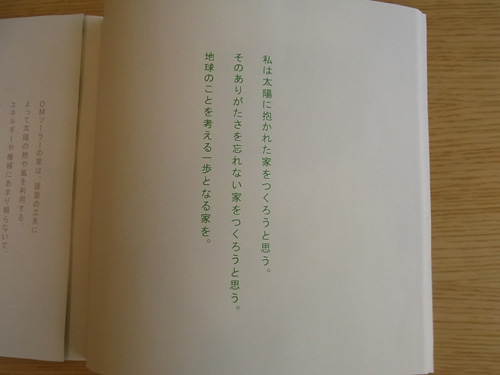 私は太陽に抱かれた家をつくろうと思う。
そのありがたさを忘れない家をつくろうと思う。
地球のことを考える一歩となる家を。
OMソーラーの家は、建築の工夫に
よって太陽の熱や風を利用する、
エネルギーや機械にあまり頼らないで、